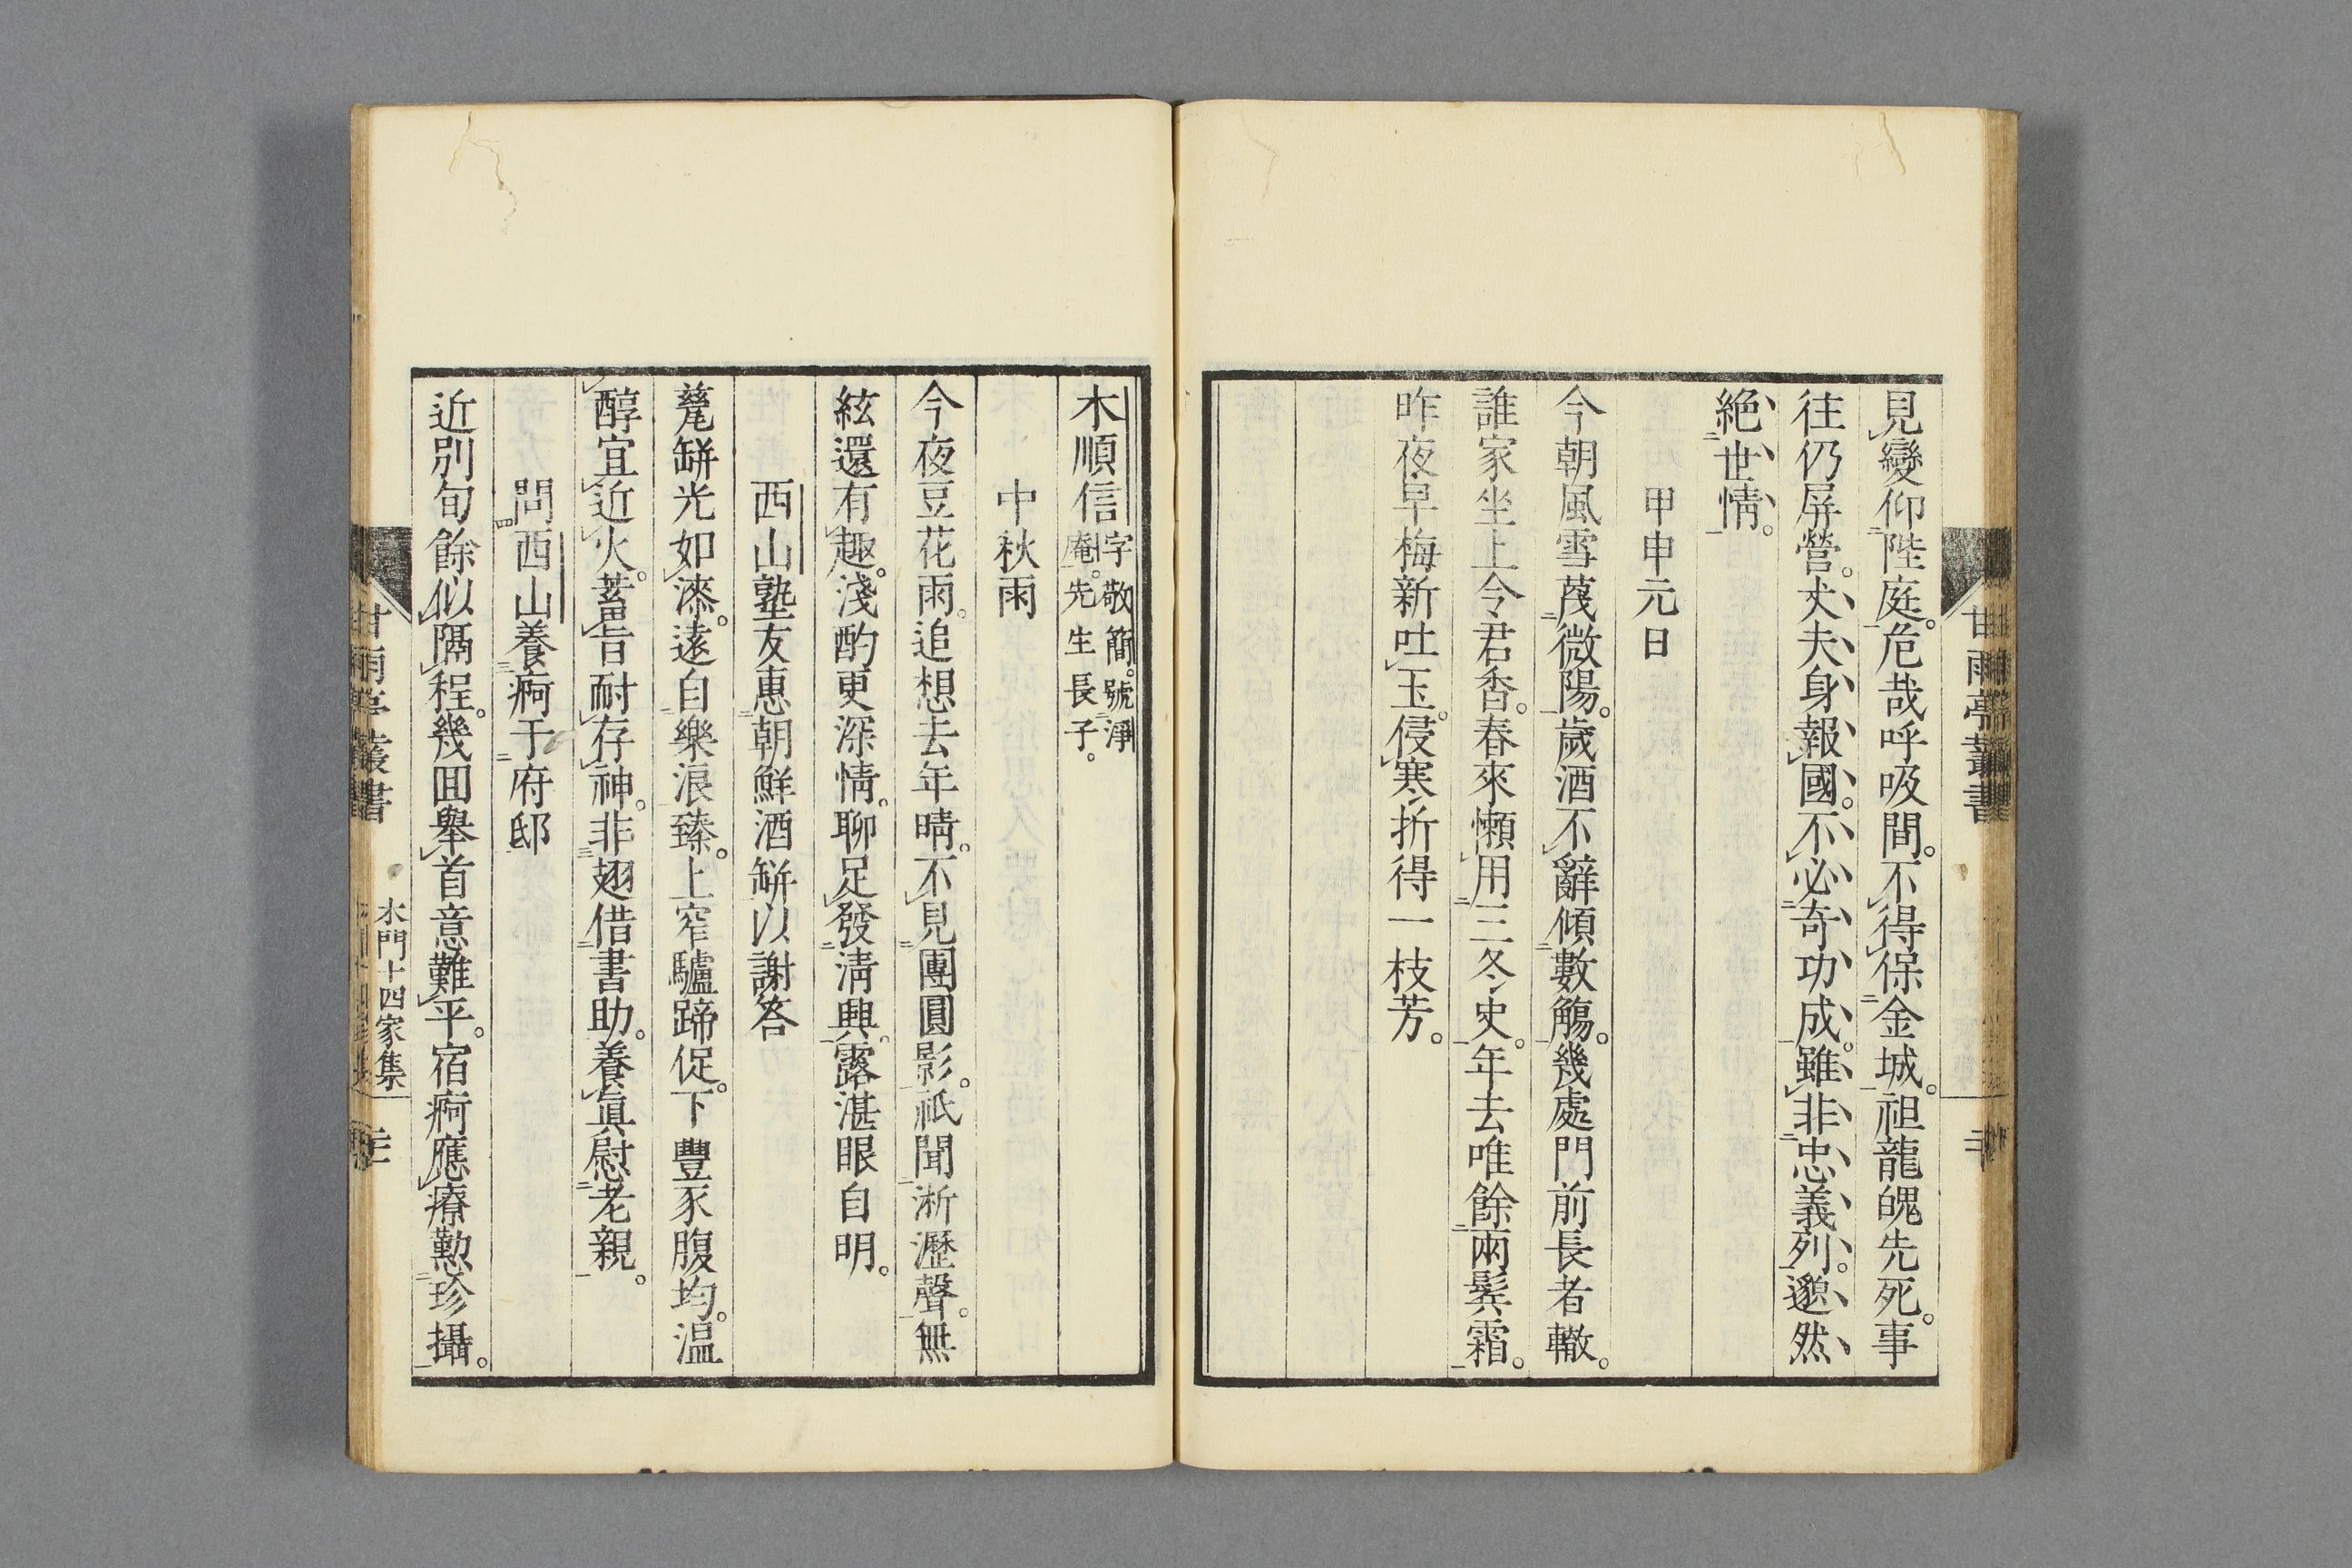 見變仰陛庭。危哉呼吸間。不得保金城。祖龍魄先死。事
往仍屏營。丈夫身報國。不必奇功成。雖非忠義列。邈然
絕世情。
甲申元日
今朝風雪蔑微陽。歲酒不辭傾數觴。幾處門前長者轍。
誰家坐上令君香。春來懶用三冬史。年去唯餘兩鬂霜。
昨夜早梅新吐玉。侵寒折得一枝芳。
甘雨亭叢書
木順信
字敬簡。號淨
庵。先生長子。
中秋雨
今夜豆花雨。追想去年晴。不見團圓影。祇聞淅瀝聲。無
絃還有趣。淺酌更深情。聊足發淸興。露湛眼自明。
西山塾友惠朝鮮酒缾以謝答
甆缾光如漆。遠自樂浪臻。上窄驢蹄促。下豐豕腹均。温
醇宜近火。蓄旨耐存神。非翅借書助。養眞慰老親。
問西山養痾于府邸
近別旬餘似隔程。幾囬擧首意難平。宿痾應療勤珍攝。
甘雨亭叢書
木門十四家集